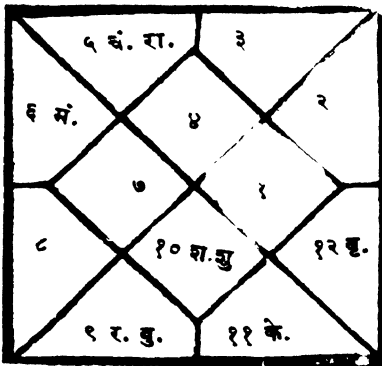 ५ चं. रा. ३
६ मं. ४ २
७ १
८ १० श.शु १२ बृ.
९ र. बु. ११ के.